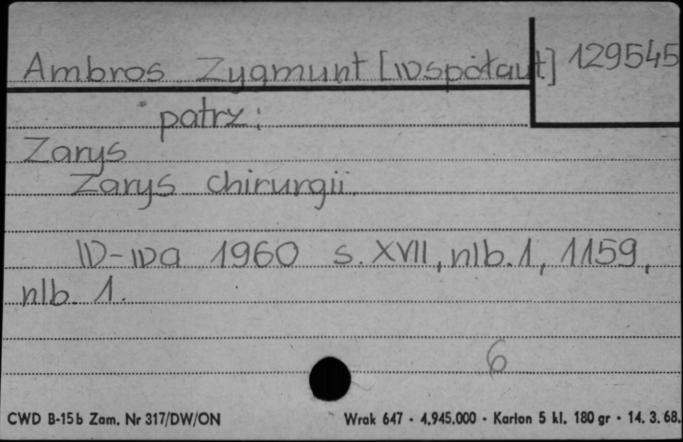 Ambros Zygmunt [współaut] 129545
patrz:
Zarys
Zarys chirurgii.
W-wa 1960 s. XVII, nlb. 1, 1159,
nlb. 1.
6
CWD B-15b Zam. Nr 317/DW/ON Wrak 647 - 4.945.000 - Karton 5 kl. 180 gr - 14. 3. 68.